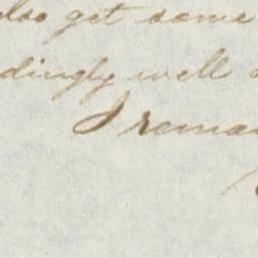 also get some
dingly well
I remai